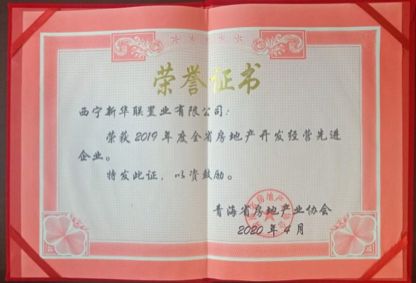 荣誉证书
西宁新华联置业有限公司：
荣获2019年度全省房地产开发经营先进
企业。
特发此证，以资鼓励。
青海省房地产业协会
2020年4月